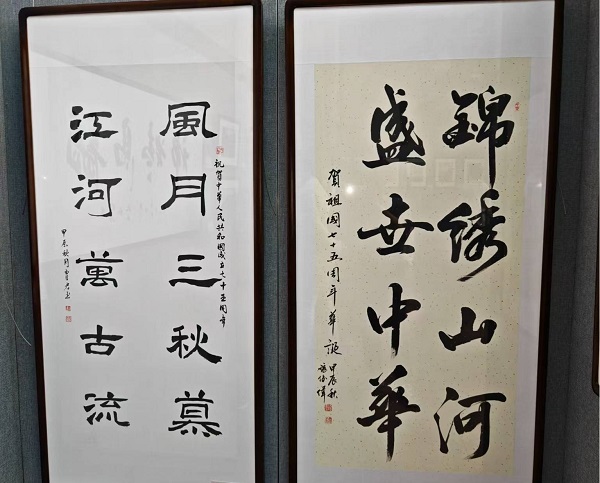 風月三秋慕
祝賀中華人民共和國成立七十五周年
江河萬古流
甲辰秋月
錦綉山河
盛世中華
賀祖國七十五周年華誕
甲辰秋